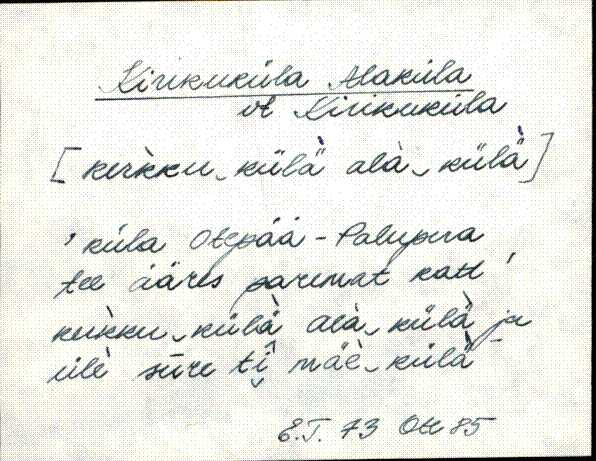 Kirikuküla Alaküla
vt Kirikuküla
[kerk̀ku‿külä̀ alà‿külä̀]
'küla Otepää - Palupera
tee ääres paremat kätt'
kerk̀ku‿külä̀ alà‿külä̀ ja
ülè sūre tî̬ mäè‿külä̀
E.T. 73 Ote 85